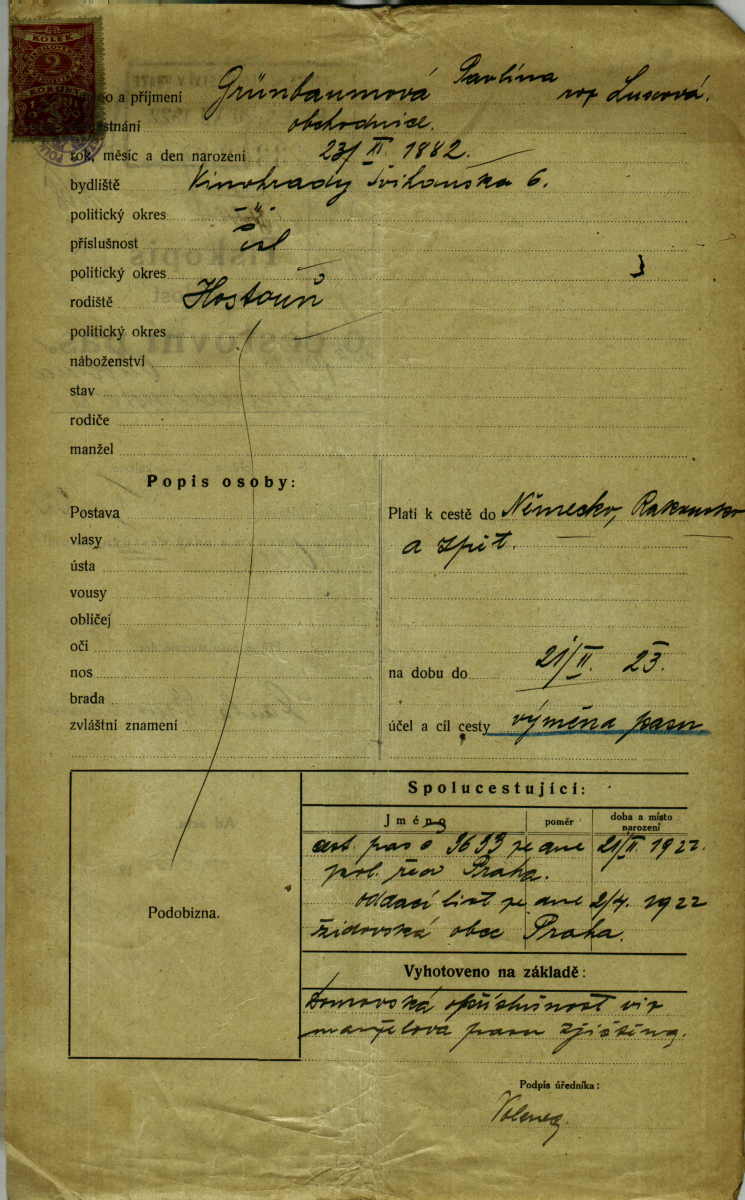 KOLEK
2
KORUNY
jméno a příjmení Grünbaumová Pavlína roz Luxová.
zaměstnání obchodnice.
rok, měsíc a den narození 23/XI. 1882.
bydliště Vinohrady Švihovská 6.
politický okres -"-
příslušnost čsl
politický okres
rodiště Hostouň
politický okres
náboženství
stav
rodiče
manžel
Popis osoby:
Postava
vlasy
ústa
vousy
obličej
oči
nos
brada
zvláštní znamení
Platí k cestě do Německo, Rakousko
a zpět.
na dobu do 21/II. 23.
účel a cíl cesty výměna pasu
Podobizna.
Spolucestující:
Jméno poměr doba a místo narození
cest. pas č 3693 ze dne 21/II 1922.
pol. řed Praha.
oddací list ze dne 2/4. 1922
židovská obec Praha.
Vyhotoveno na základě:
Domovská příslušnost viz
manželova pasu zjištěna.
Podpis úředníka: